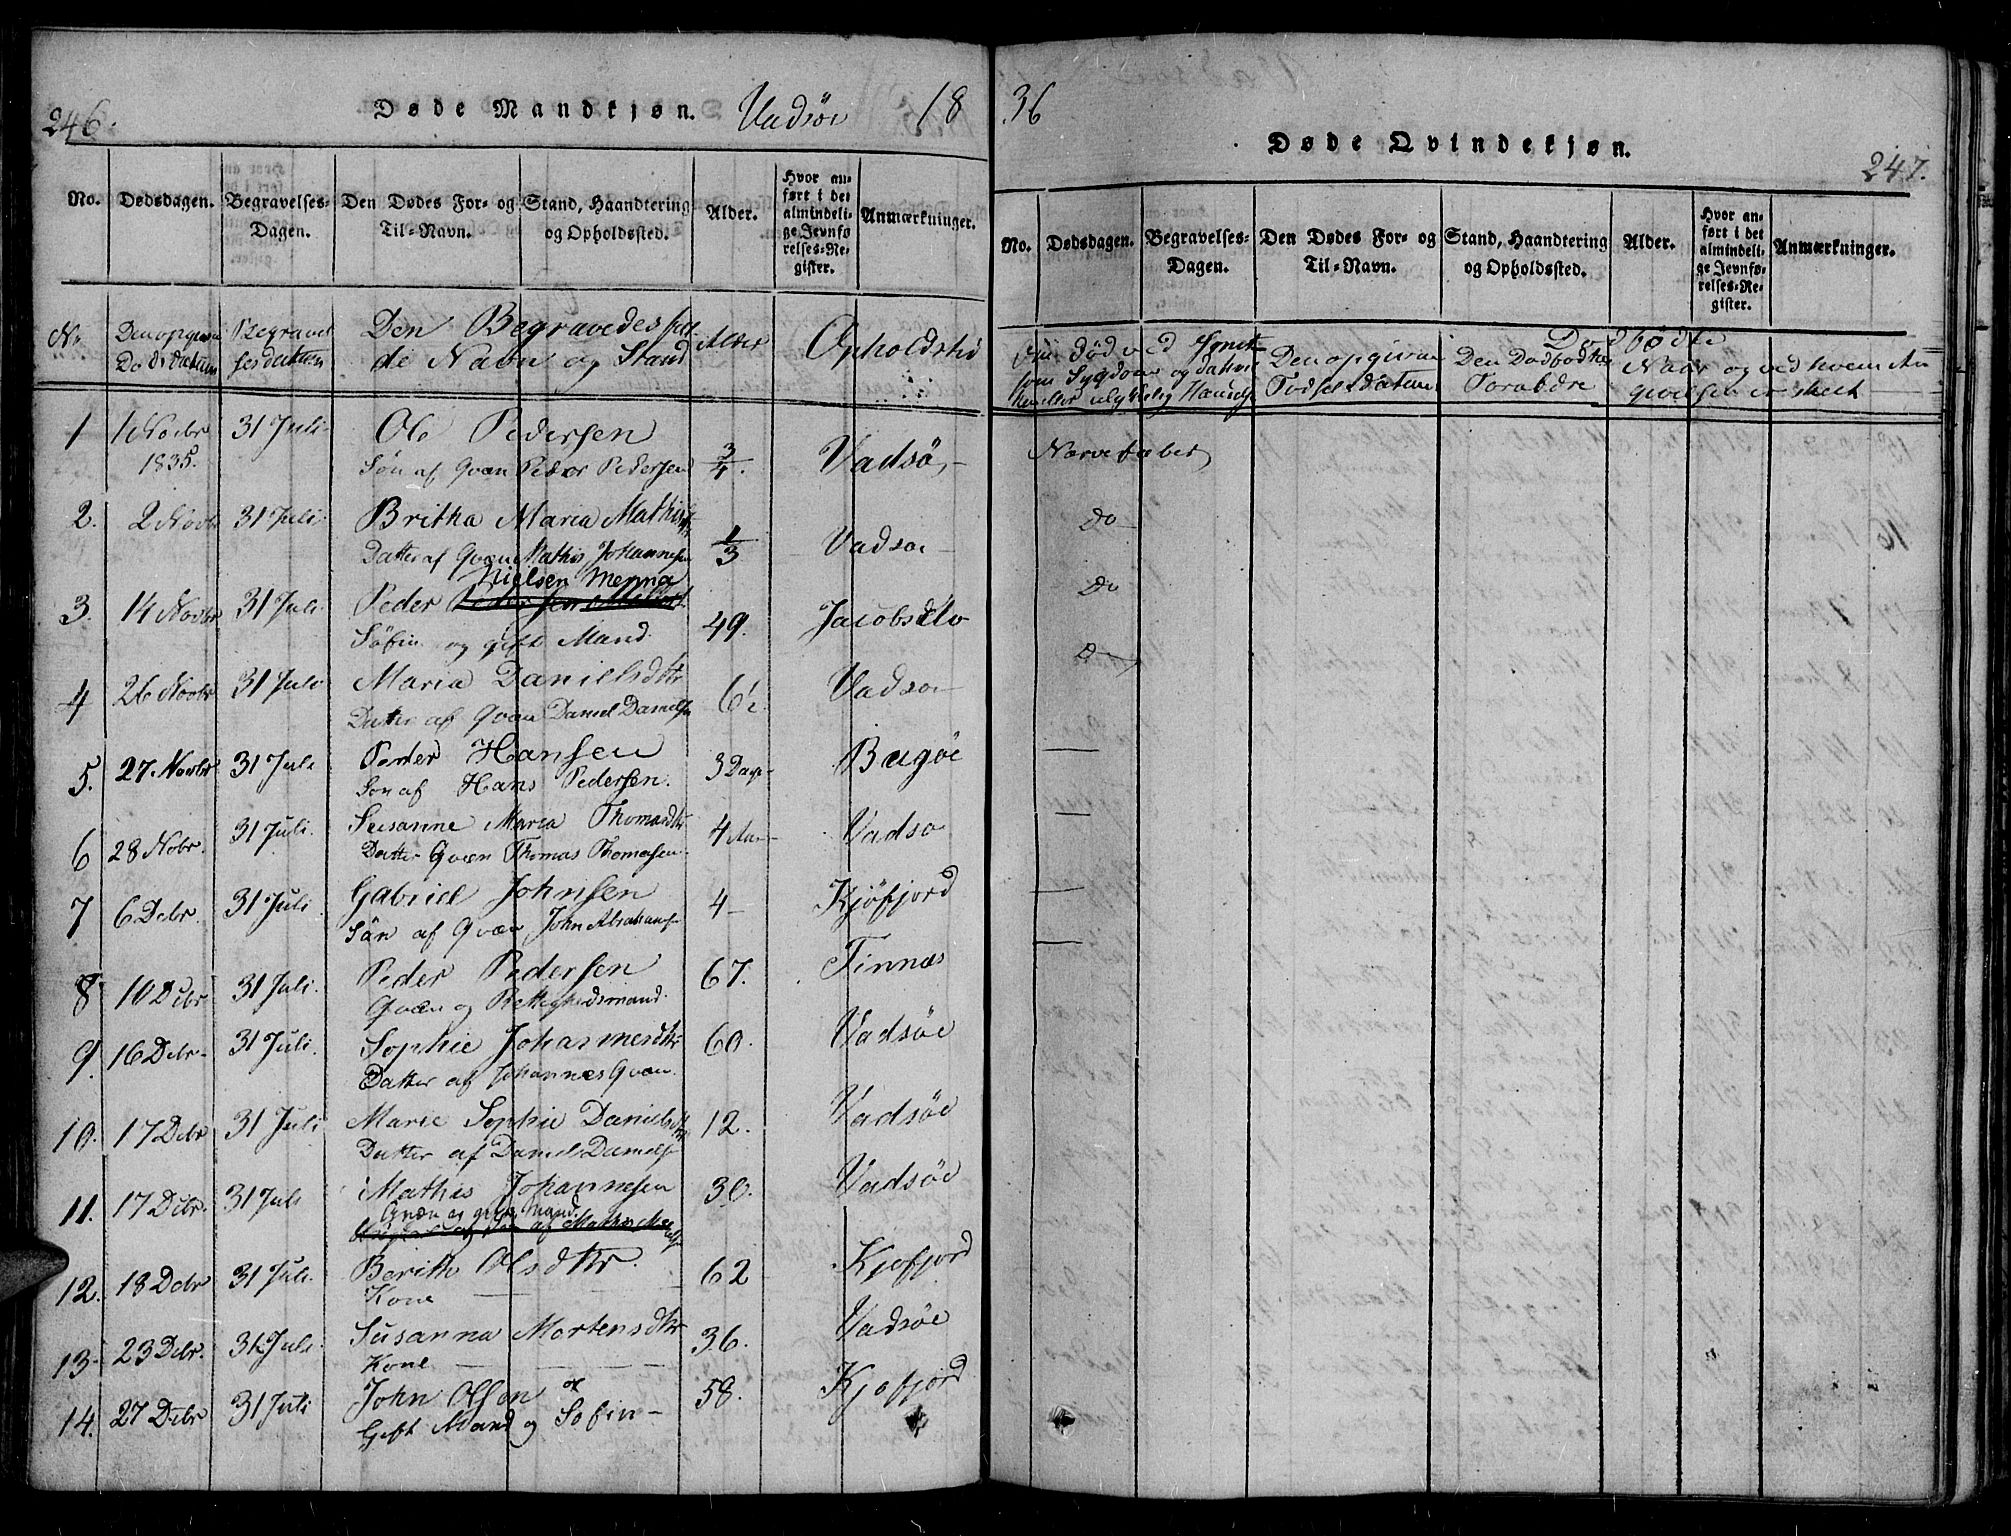 246.
Døde Mandkjøn. Vadsöe 18
No. Dødsdagen. Begravelses-Dagen. Den Dødes For- og Til-Navn. Stand, Haandtering og Opholdssted. Alder. Hvor anført i det almindelige Jevnførelses-Register. Anmærkninger.
Nr. Den opgivne Döds datum Begravelses datum Den Begravedes fulde Navn og Stand Alder Opholdsted
1 1 Novbr 1835. 31 Juli Ole Pedersen
Sön af Qvæn Peder Pedersen 3/4. Vadsö
2. 2 Novbr 31 Juli Britha Maria Mathisdtr
Datter af Qvæn Mathis Johannesen 1/3 Vadsöe
Nielsen Menna
3. 14 Novbr 31 Juli Peder
Söfin og gift Mand. 49. Jacobselv
4 26 Novbr 31 Juli Maria Danielsdtr
Datter af Qvæn Daniel Danielsen 6½ Vadsöe
5. 27 Novbr 31 Juli Peder Hansen
Sön af Hans Pedersen. 3 Dage Bugöe
6 28 Nobr. 31 Juli. Susanne Maria Thomasdtr
Datter Qvæn Thomas Thomasen 4 Aar Vadsö
7 6 Debr. 31 Juli Gabriel Johnsen
Sön af Qvæn John Abrahams 4 Kjöfjord
8 10 Debr 31 Juli. Peder Pedersen
Qvæn og Rettighedsmand. 67. Finnæs
9. 16 Debr 31 Juli. Sophie Johannesdtr
Datter af Johannes Qvæn. 60. Vadsöe
10. 17 Debr 31 Juli Marie Sophie Danielsdtr
Datter af Daniel Daniels 12. Vadsöe
11. 17 Debr. 31 Juli Mathis Johannesen
Qvæn og gift Mand. 30. Vadsöe
12. 18 Debr 31 Juli. Berith Olsdtr.
Kone 62 Kjöfjord
13 23 Debr. 31 Juli Susanna Mortensdtr
Kone 36. Vadsöe
14. 27 Debr 31 Juli John Olsen
Gift Mand og Söfin 58. Kjöfjord
36
Døde Qvindekjøn.
247.
No. Dødsdagen. Begravelses-Dagen. Den Dødes For- og Til-Navn. Stand, Haandtering og Opholdssted. Alder. Hvor anført i det almindelige Jevnførelses-Register. Anmærkninger.
Dødfödte
död ved smitsom Sygdom eller ulykkelig Hændelse Den opgivne Födselsdatum Den Dødfödtes Forældre Naar og ved hvem Angivelsen er skeet
Nervefeber
Do
Do
Do